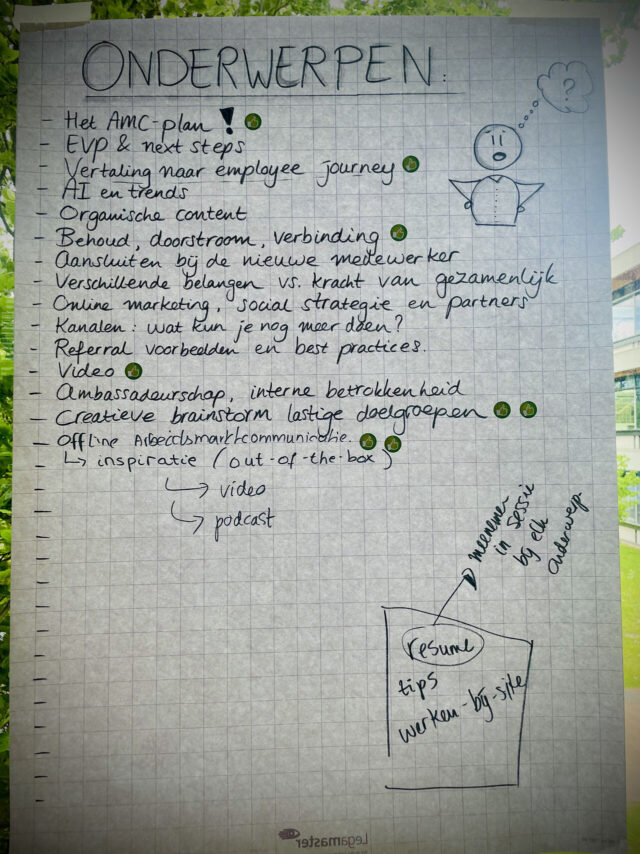 ONDERWERPEN:
?
- Het AMC-plan !
- EVP & next steps
- Vertaling naar employee journey
- AI en trends
- Organische content
- Behoud, doorstroom, verbinding
- Aansluiten bij de nieuwe medewerker
- Verschillende belangen vs. kracht van gezamenlijk
- Online marketing, social strategie en partners
- Kanalen: wat kun je nog meer doen?
- Referral voorbeelden en best practices.
- Video
- Ambassadeurschap, interne betrokkenheid
- Creatieve brainstorm lastige doelgroepen
- Offline Arbeidsmarktcommunicatie.
↳ inspiratie (out-of-the-box)
↳ video
↳ podcast
meenemen
in sessie
bij elk
onderwerp
resume
tips
werken-bij-site
Legamaster